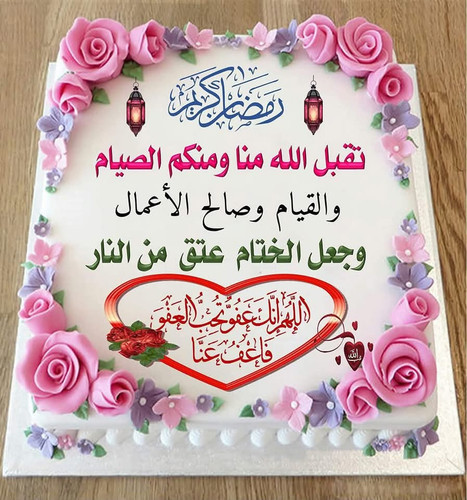 رمضان كريم
تقبل الله منا ومنكم الصيام
والقيام وصالح الأعمال
وجعل الختام عتق من النار
اللهم إنك عفو تحب العفو
فاعف عنا
الله